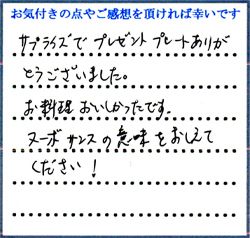 お気付きの点やご感想を頂ければ幸いです
サプライズでプレゼントプレートありが
とうございました。
お料理おいしかったです.
ヌーボサンスの意味をおしえて
ください!